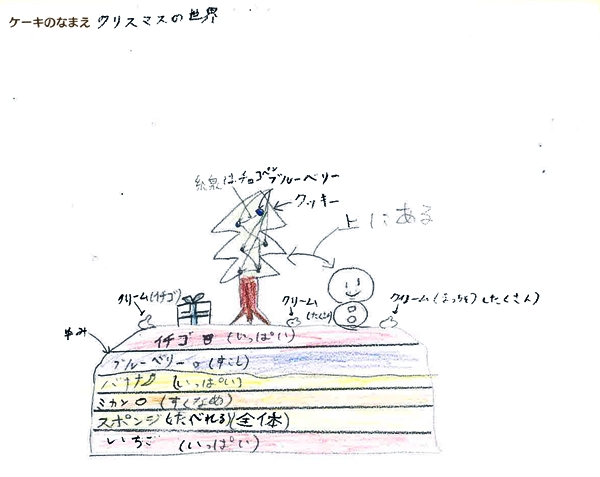 ケーキのなまえ クリスマスの世界
線はチョコペン ブルーベリー
クッキー
上にある
クリーム(イチゴ)
クリーム
クリーム
たくさん)
イチゴ (いっぱい)
ブルーベリー (すこし)
バナナ (いっぱい)
ミカン (すくなめ)
スポンジ(たべれる)(全体)
いちご (いっぱい)